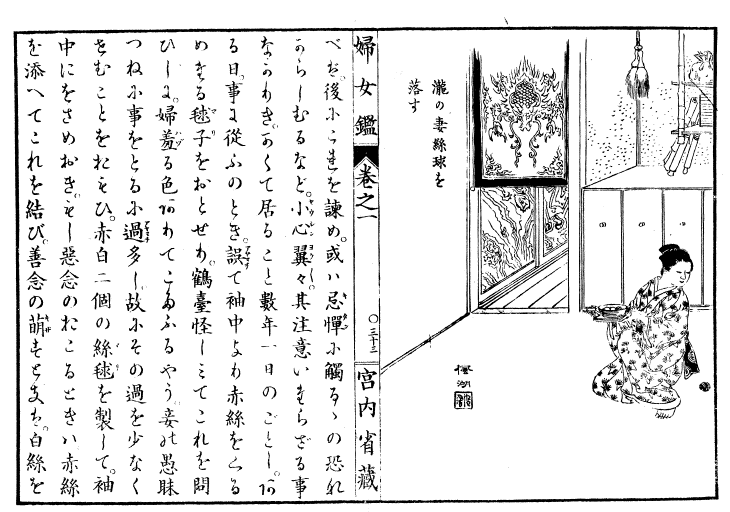 瀧の妻絲球を
落す
楓湖
婦女鑑 巻之一 〇三十三 宮内省藏
べば。後にこれを諫め。或ハ忌憚に觸るゝの恐れ
あらしむるなど。小心翼々。其注意いたらざる事
なかりき。かくて居ること數年一日のごとし。あ
る日。事に從ふのとき。誤て袖中より赤絲をくる
めたる毬子をおとせり。鶴臺怪しミてこれを問
ひしに。婦羞る色ありてこたふるやう。妾は愚昧
つねに事をとるに過多し。故にその過を少なく
せむことをおもひ。赤白二個の絲毬を製して。袖
中にをさめおき。もし惡念のおこるときハ赤絲
を添へてこれを結び。善念の萌すときは。白絲を